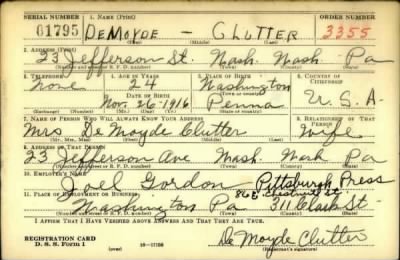 SERIAL NUMBER 1. NAME (Print) ORDER NUMBER
01795 DEMOYDE — CLUTTER 3355
(First) (Middle) (Last)
2. ADDRESS (Print)
23 Jefferson St. Wash. Wash. Pa
(Number and street or R. F. D. number) (Town) (County) (State)
3. TELEPHONE 4. AGE IN YEARS 5. PLACE OF BIRTH 6. COUNTRY OF CITIZENSHIP
None 24 Washington
DATE OF BIRTH
Nov. 26-1916 Penna U. S. A.
(Exchange) (Number) (Mo.) (Day) (Yr.) (State or country)
7. NAME OF PERSON WHO WILL ALWAYS KNOW YOUR ADDRESS 8. RELATIONSHIP OF THAT PERSON
Mrs. De Moyde Clutter Wife
(Mr., Mrs., Miss) (First) (Middle) (Last)
9. ADDRESS OF THAT PERSON
23 Jefferson Ave Wash. Wash Pa
(Number and street or R. F. D. number) (Town) (County) (State)
10. EMPLOYER'S NAME
Joel Gordon Pittsburgh Press
11. PLACE OF EMPLOYMENT OR BUSINESS 86 E. St
Washington Pa 311 Clark St.
(Number and street or R. F. D. number) (Town) (County) (State)
I AFFIRM THAT I HAVE VERIFIED ABOVE ANSWERS AND THAT THEY ARE TRUE.
REGISTRATION CARD
D. S. S. Form 1 (over) 16-17105 De Moyde Clutter
(Registrant's signature)